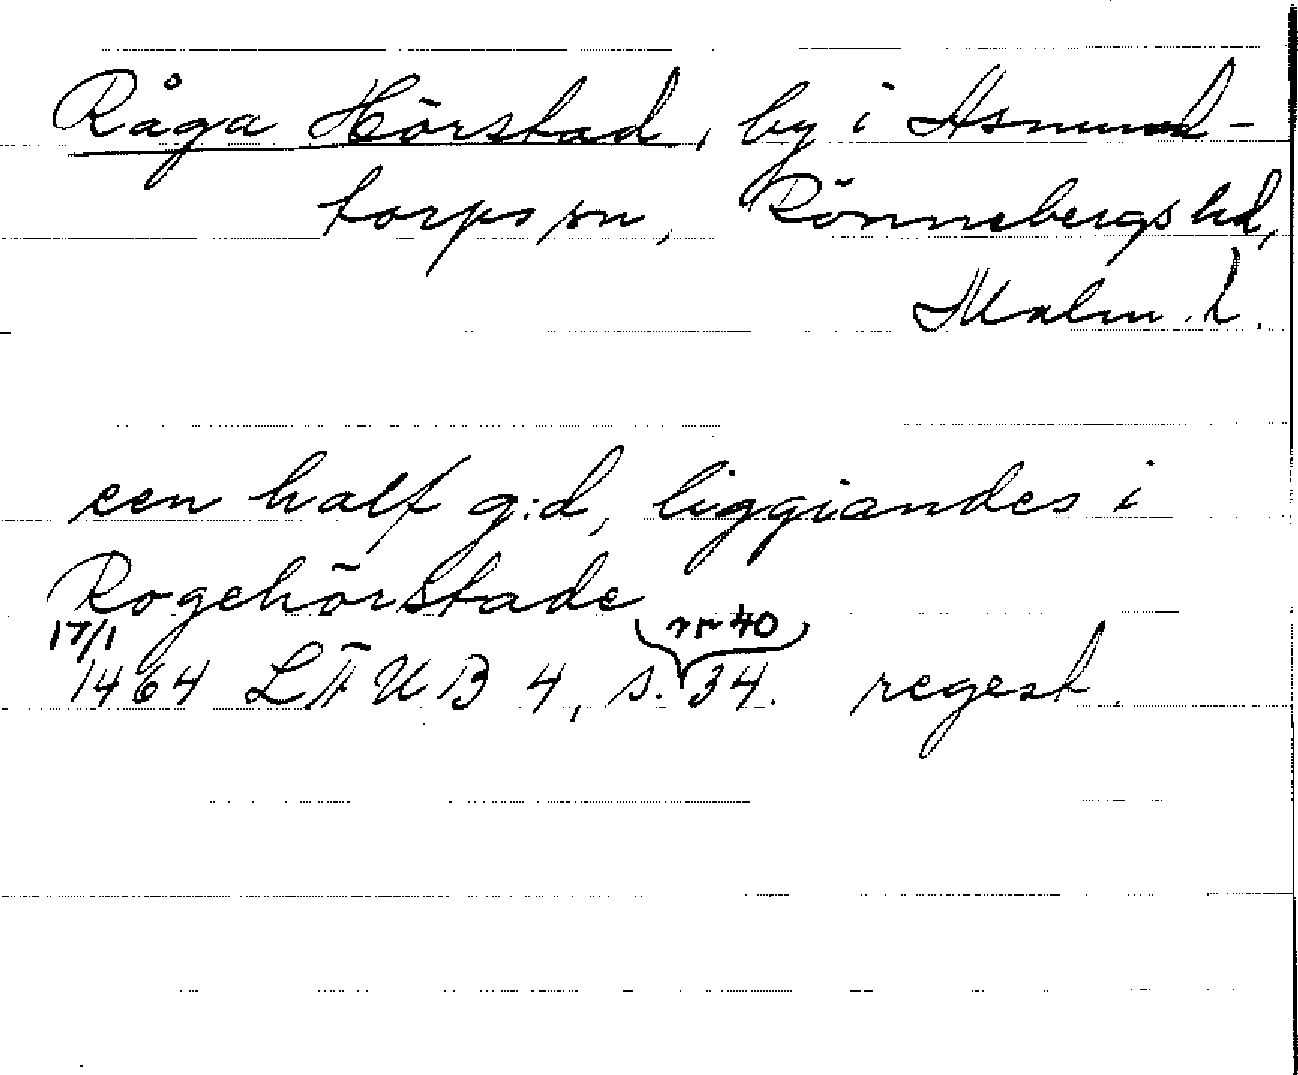 Råga Hörstad, by i Asmund-
torps sn, Rönnebergs hd,
Malm. l.
een half g:d, liggiandes i
Rogehörstade
17/1 nr 40
1464 LÄUB 4, s. 34. regest.